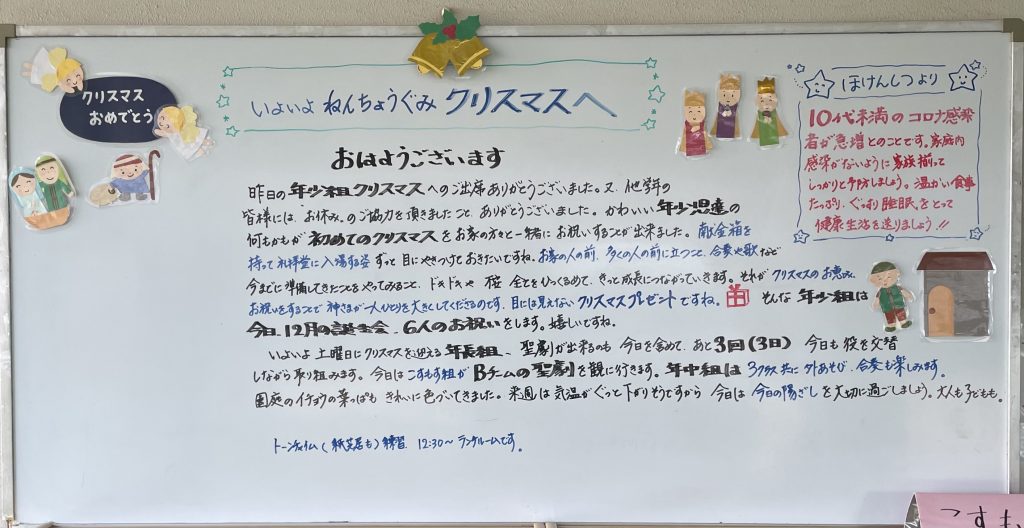 クリスマス
おめでとう
いよいよ ねんちょうぐみ クリスマスへ
ほけんしつより
10代未満のコロナ感染
者が急増とのことです。家庭内
感染がないように家族揃って
しっかりと予防しましょう。温かい食事
たっぷり、ぐっすり睡眠をとって
健康生活を送りましょう!!
おはようございます
昨日の年少組クリスマスへのご出席ありがとうございました。又、他学年の
皆様には、お休みのご協力を頂きましたこと、ありがとうございました。かわいい年少児達の
何もかもが初めてのクリスマスをお家の方と一緒にお祝いすることが出来ました。献金箱を
持って礼拝堂に入場する姿 ずっと目にやきつけておきたいですね。お家の人の前、多くの人の前に立つこと、合奏や歌など
今までに準備してきたことをやってみること、ドキドキや 全てをひっくるめて、きっと成長につながっていきます。それがクリスマスのお恵み、
お祝いをすることで神さまが一人ひとりを大きくしてくださるのです。目には見えないクリスマスプレゼントですね。 そんな年少組は
今日、12月の誕生会、6人のお祝いをします。嬉しいですね。
いよいよ土曜日にクリスマスを迎える年長組、聖劇が出来るのも今日を含めて、あと3回(3日) 今日も役を交替
しながら取り組みます。今日はこすもす組がBチームの聖劇を観に行きます。年中組は3クラス共に外あそび、合奏も楽しみます。
園庭のイチョウの葉っぱもきれいに色づいてきました。来週は気温がぐっと下がりそうですから 今日は今日の陽ざしを大切に過ごしましょう。大人も子どもも。
トーンチャイム(紙芝居も)練習 12:30〜ランチルームです。
こすも